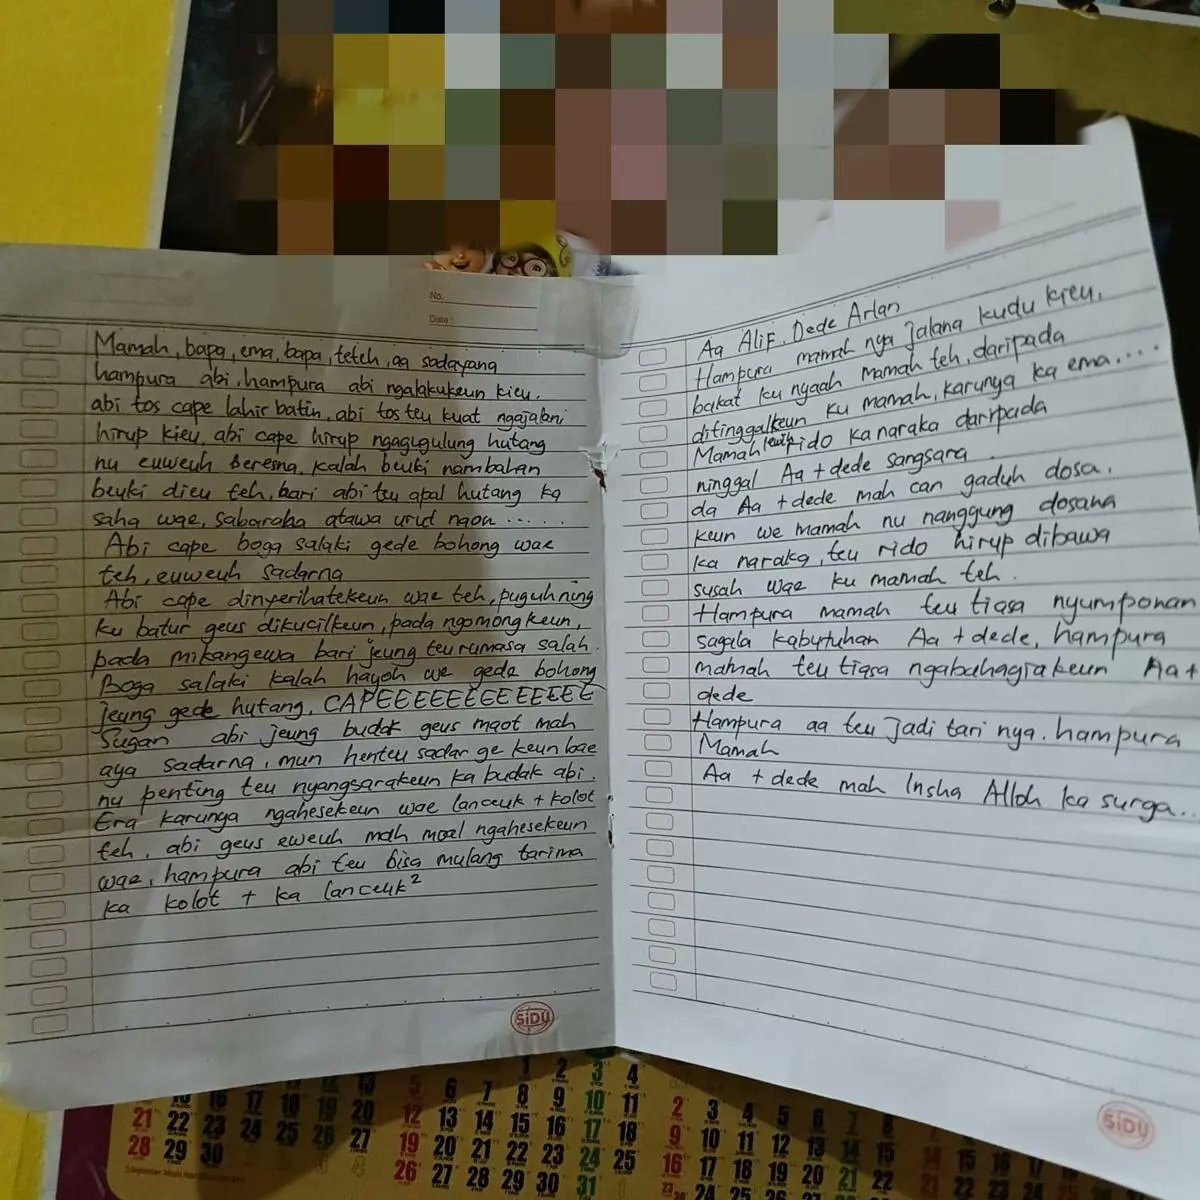 No.
Date :
Mamah, bapa, ema, bapa, teteh, aa sadayana
hampura abi, hampura abi ngalakukeun kieu.
abi tos cape lahir batin, abi tos teu kuat ngajalani
hirup kieu, abi cape hirup ngagugulung hutang
nu euweuh beresna, kalah beuki nambahan
beuki dieu teh, bari abi teu apal hutang ka
saha wae, sabaraha atawa urut naon ......
Abi cape boga salaki gede bohong wae
teh, euweuh sadarna
Abi cape dinyerihatekeun wae teh, puguhning
ku batur geus dikucilkeun, pada ngomongkeun,
pada mikangewa bari jeung teu rumasa salah.
Boga salaki kalah hayoh we gede bohong
jeung gede hutang, CAPEEEEEEEEEEEEEE
Sugan abi jeung budak geus maot mah
aya sadarna, mun henteu sadar ge keun bae
nu penting teu nyangsarakeun ka budak abi.
Era karunya ngahesekeun wae lanceuk + kolot
teh, abi geus eweuh mah moal ngahesekeun
wae, hampura abi teu bisa mulang tarima
ka kolot + ka lanceuk²
SiDU
Aa Alif, Dede Arlan
Hampura mamah nya jalana kudu kieu,
bakat ku nyaah mamah teh, daripada
ditinggalkeun ku mamah, karunya ka ema....
Mamah rido ka naraka daripada
ninggal Aa + dede sangsara.
da Aa + dede mah can gaduh dosa,
keun we mamah nu nanggung dosana
ka naraka, teu rido hirup dibawa
susah wae ku mamah teh.
Hampura mamah teu tiasa nyumponan
sagala kabutuhan Aa + dede, hampura
mamah teu tiasa ngabahagiakeun Aa +
dede
Hampura aa teu jadi tari nya, hampura
Mamah
Aa + dede mah Insha Alloh ka surga...
SiDU
1 2 3 4
12 13 5 6 7 8 9 10 11
21 22 23 24 25 26 27 19 20 21 22 23 24 25
28 29 30 26 27 28 29 30 31